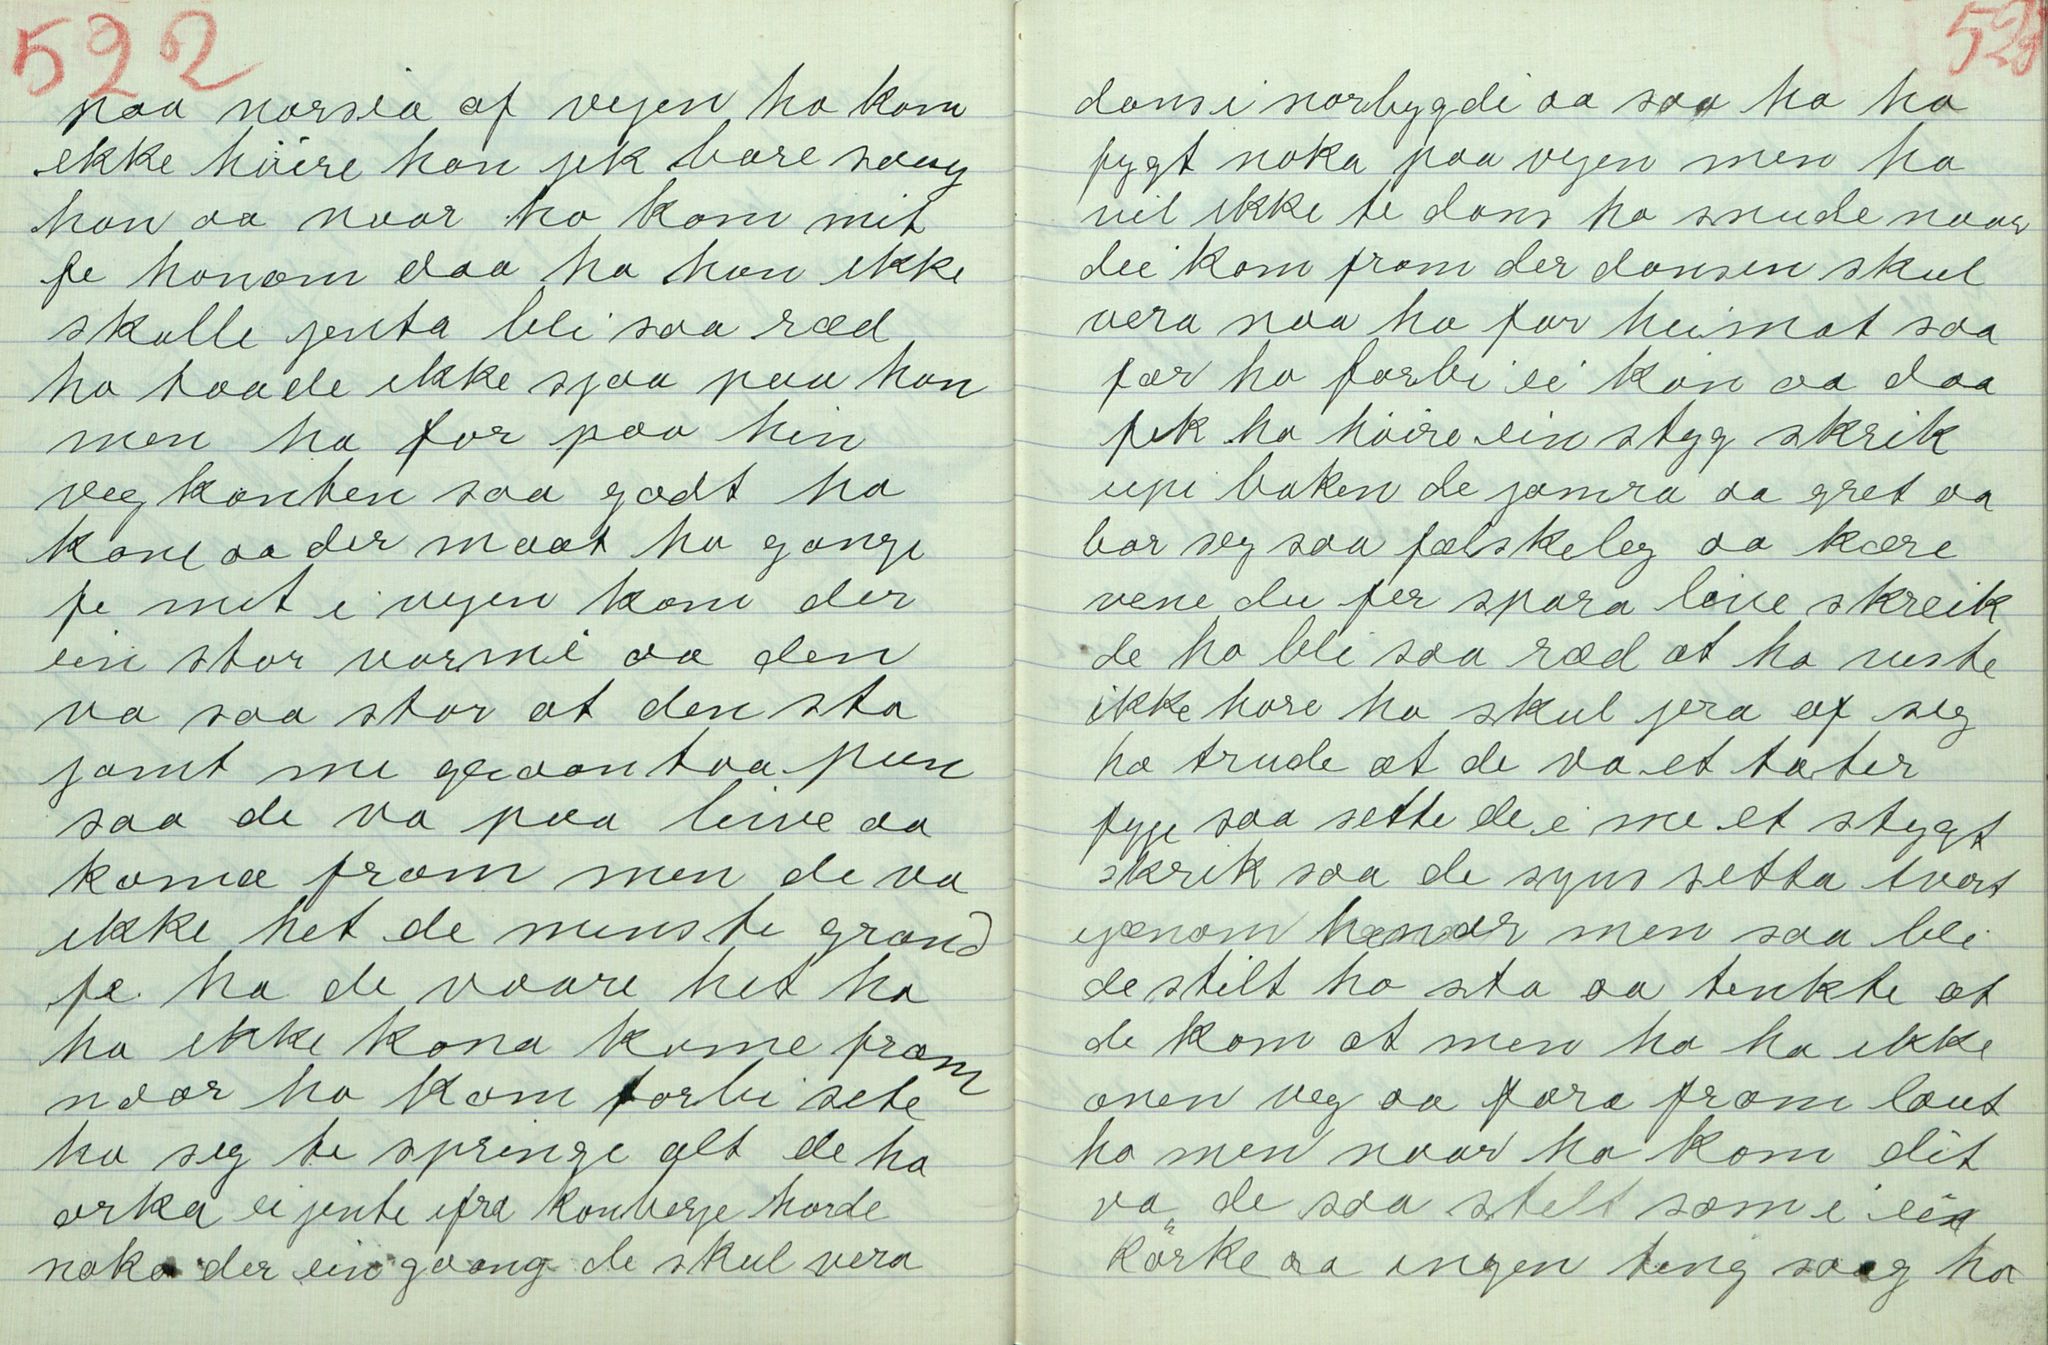 522
paa norsia af vejen ho kom
ikke höire han jek bare saag
han aa naar ho kom mit
fe honom daa ha han ikke
skulle jenta bli saa ræd
ho taade ikke sjaa paa han
men ho for paa hin
vegkanten saa godt ho
kone aa der maat ho gange
fe mit i vejen kom der
ein stor varme aa den
va saa stor at den sta
jamt me
saa de va paa live aa
koma fram men de va
ikke het de minste grand
fe ha de vaare het ha
ho ikke kona kome fram
naar ho kom forbi sete
ho seg te springe alt de ho
orka ei jente ifra Konberje horde
noka der ein gaang de skul vera
523
dans i norbygdi aa saa ha ho
fygt noka paa vejen men ho
vil ikke te dans ho snude naar
dei kom fram der dansen skul
vera naa ho for heimat saa
for ho forbi ei kön aa daa
fek ho höire ein styg skrik
upi baken de jamra aa gret aa
bar seg saa fælskeleg aa kære
vene du fer spara live skreik
de ho bli saa ræd at ho viste
ikke hore ho skul jera af seg
ho trude at de va et tater
fygje saa sette de i me et stygt
skrik saa de syns setta tvært
ijænom henar men saa bli
de stilt ho sta aa tenkte at
de kom at men ho ha ikke
anen veg aa fara fram laut
ho men naar ho kom dit
va de saa stelt som i ein
körke aa ingen ting saag ho